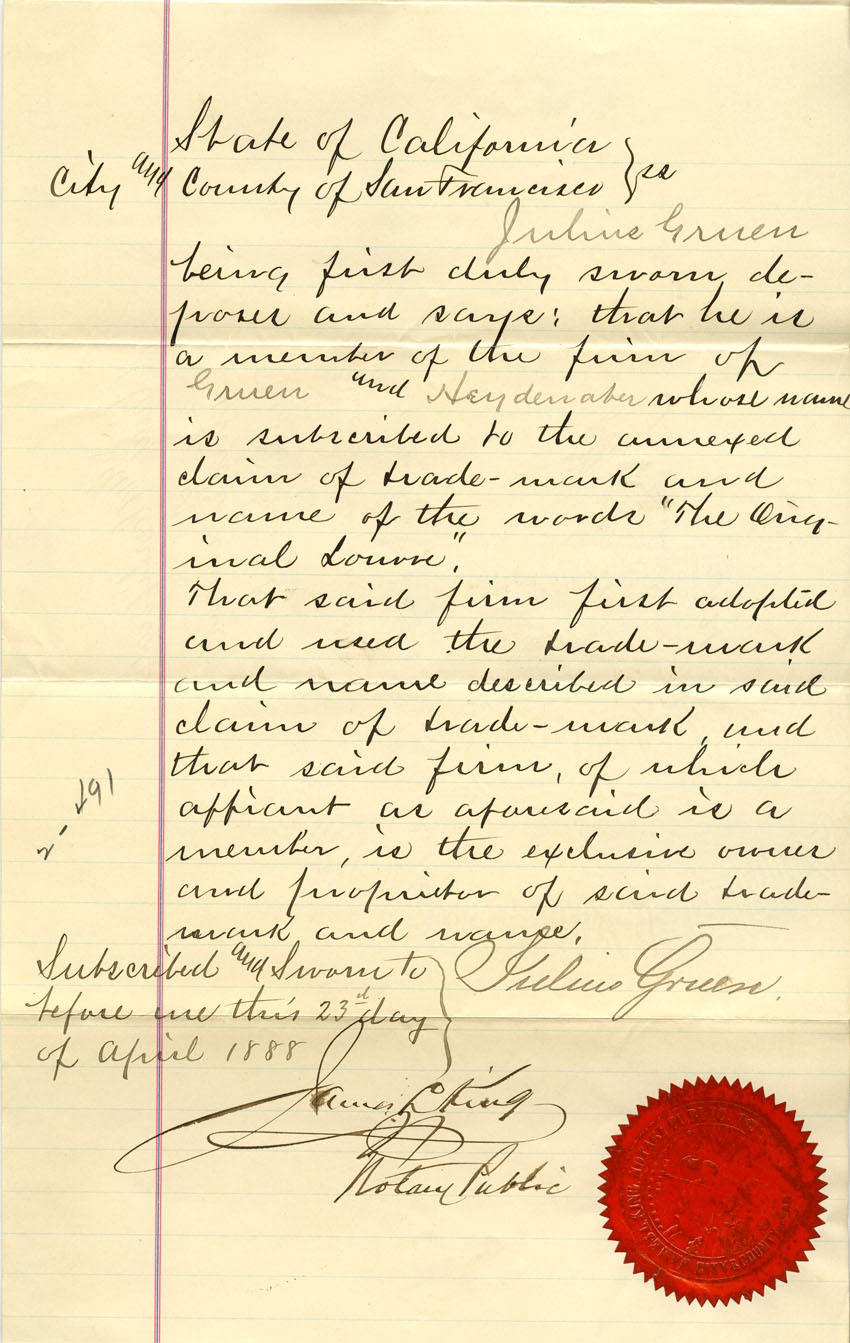 State of California
City and County of San Francisco } ss
Julius Gruen
being first duly sworn, de-
poses and says: that he is
a member of the firm of
Gruen and Heydenaber whose name
is subscribed to the annexed
claim of trade-mark and
name of the words "The Orig-
inal Louvre".
That said firm first adopted
and used the trade-mark
and name described in said
claim of trade-mark, and
that said firm, of which
affiant as aforesaid is a
member, is the exclusive owner
and proprietor of said trade-
mark and name.
Julius Gruen.
Subscribed and Sworn to
before me this 23d day
of April 1888
James L King
Notary Public
JAMES L. KING NOTARY PUBLIC
CITY & COUNTY